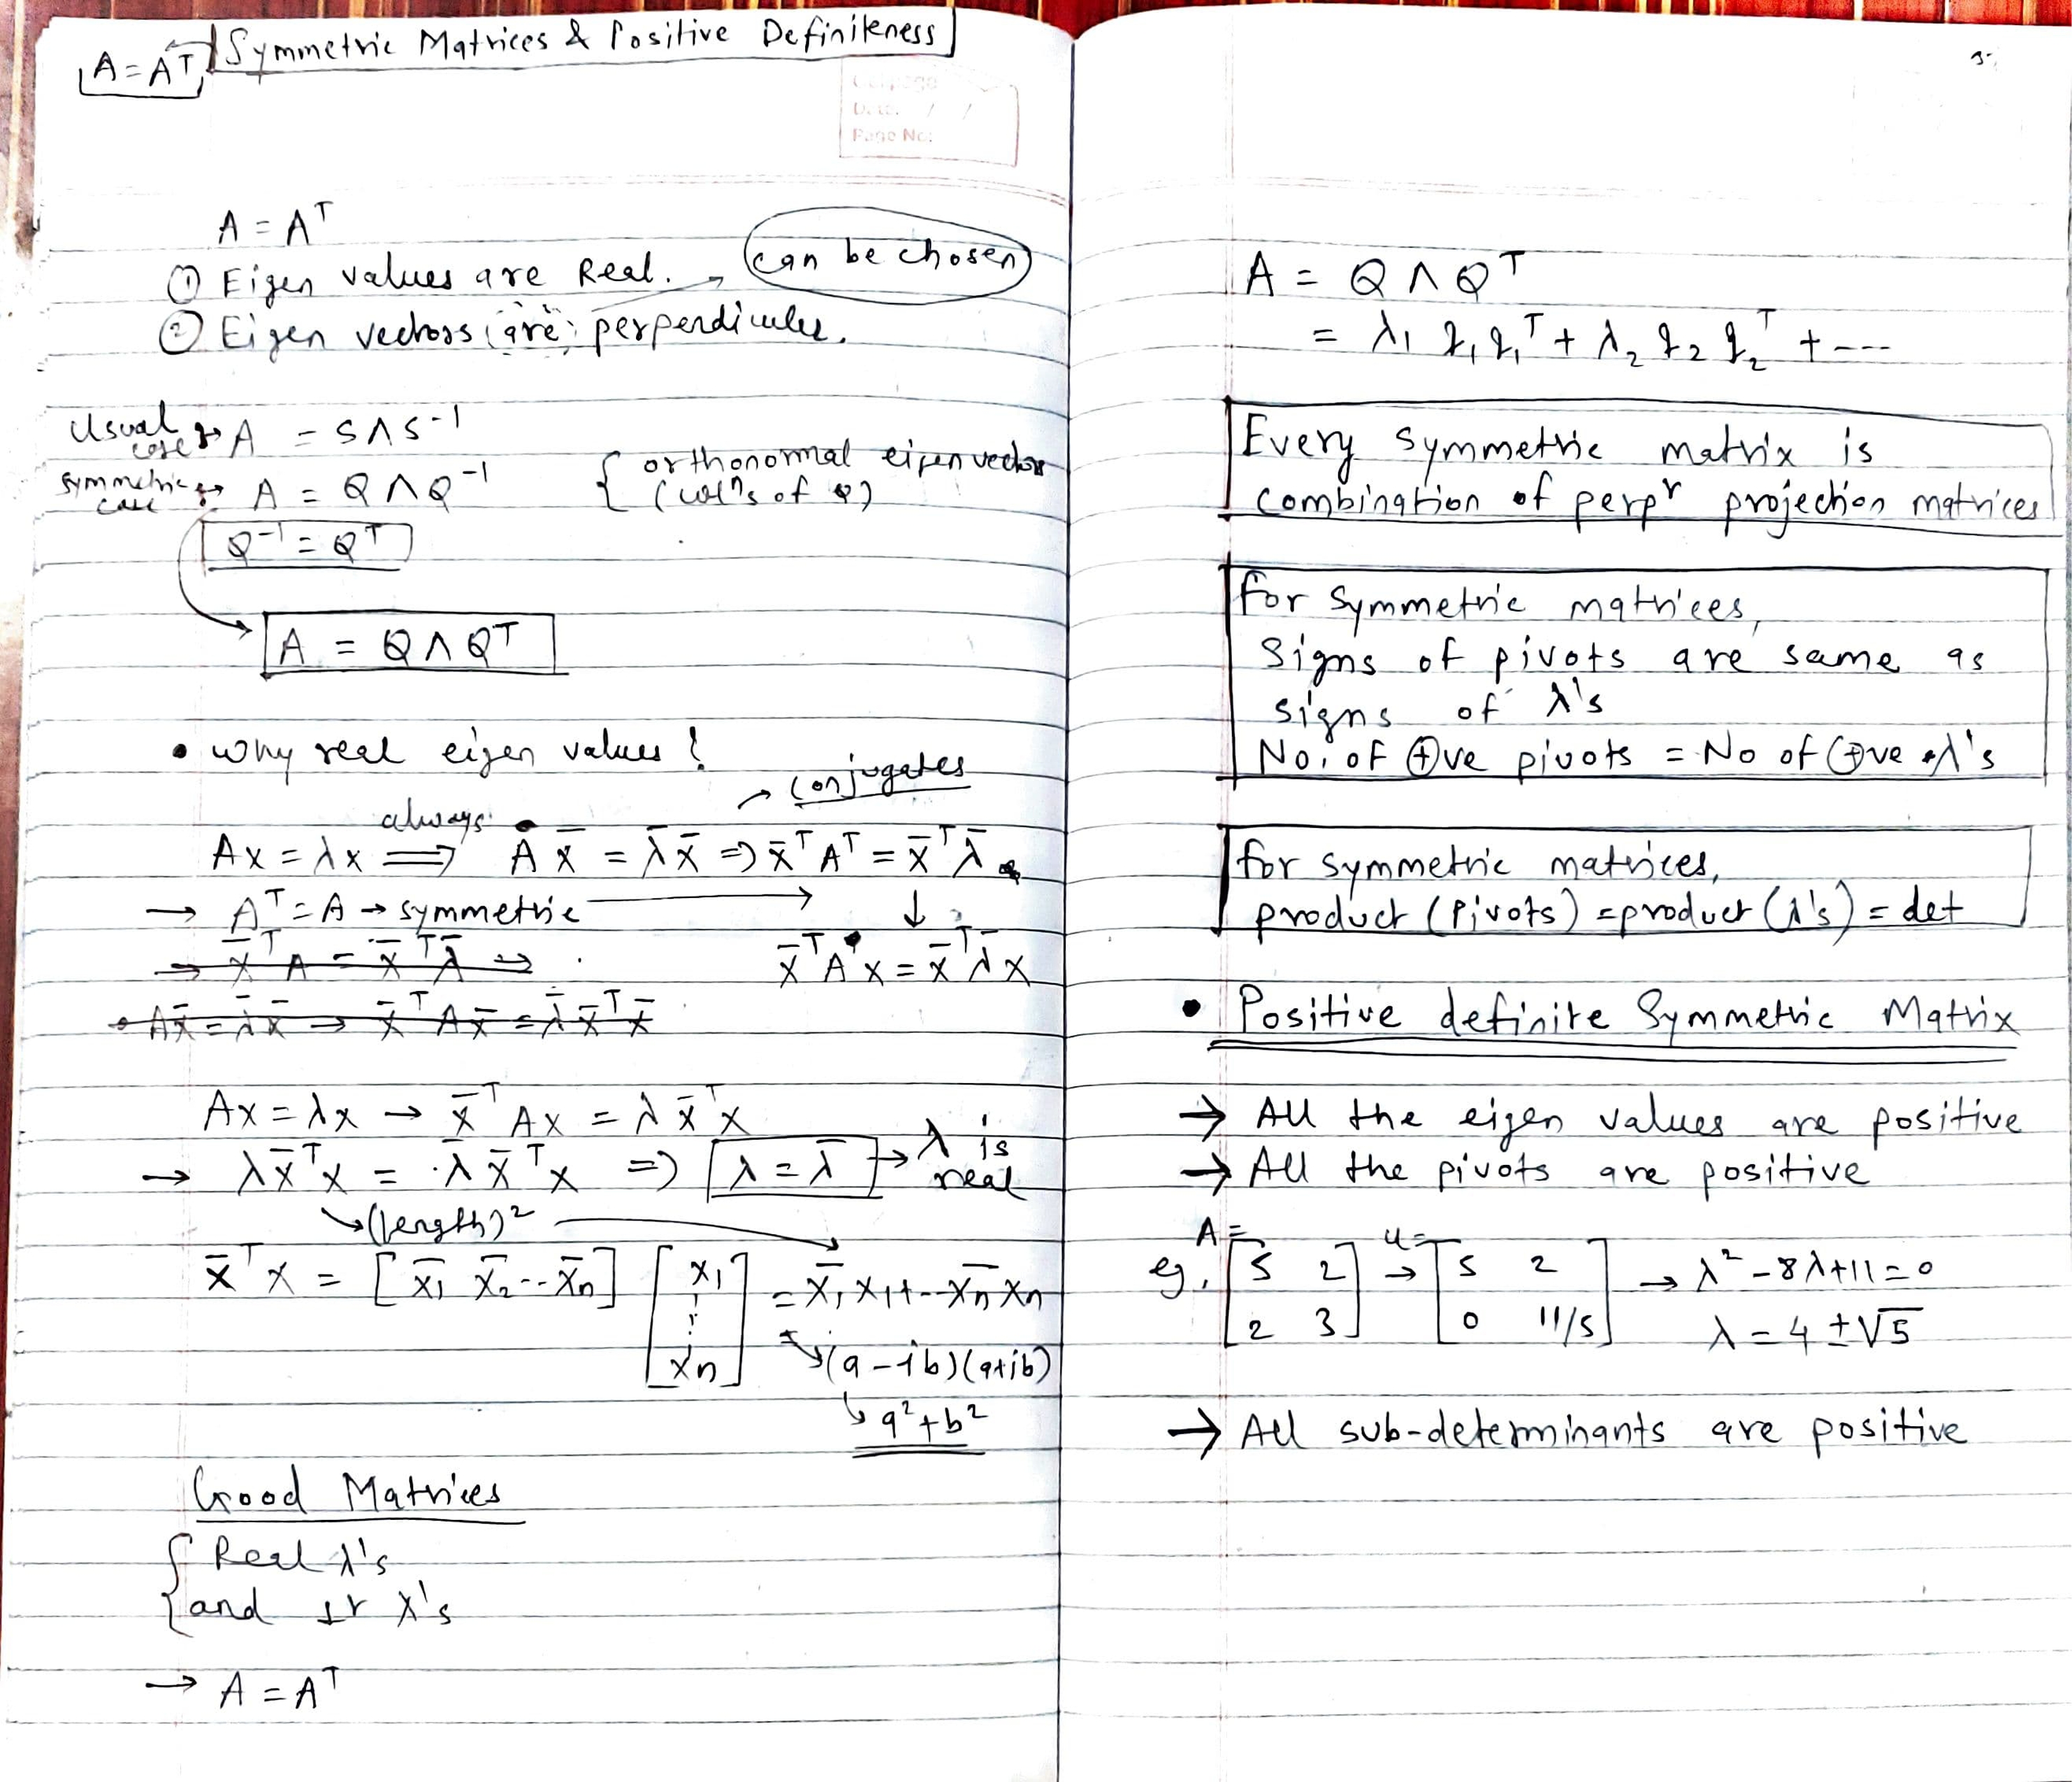 A = Aᵀ
Symmetric Matrices & Positive Definiteness
Date: / /
Page No:
A = Aᵀ
① Eigen values are Real.
can be chosen
② Eigen vectors (are) perpendicular.
Usual case → A = SΛS⁻¹
symmetric case → A = QΛQ⁻¹
{ orthonormal eigen vectors
(colⁿs of Q)
Q⁻¹ = Qᵀ
A = QΛQᵀ
• Why real eigen values?
→ conjugates
always
Ax = λx ⟹ A x̄ = λ̄ x̄ ⇒ x̄ᵀ Aᵀ = x̄ᵀ λ̄
→ Aᵀ = A → symmetric → ↓
→ x̄ᵀ A = x̄ᵀ λ̄ ⇒
x̄ᵀ A x = x̄ᵀ λ̄ x
→ A x̄ = λ̄ x̄ → x̄ᵀ A x̄ = λ̄ x̄ᵀ x̄
Ax = λx → x̄ᵀ A x = λ x̄ᵀ x
→ λ x̄ᵀ x = λ̄ x̄ᵀ x ⇒ λ = λ̄ → λ is real
↘ (length)²
x̄ᵀ x = [x̄₁ x̄₂ -- x̄n] [x₁ ⋮ xn] = x̄₁ x₁ + -- x̄n xn
↘ (a - ib)(a+ib)
↳ a² + b²
Good Matrices
{ Real λ's
and ⊥r x's
→ A = Aᵀ
A = QΛQᵀ
= λ₁ q₁ q₁ᵀ + λ₂ q₂ q₂ᵀ + ---
Every symmetric matrix is
combination of perpʳ projection matrices
for symmetric matrices,
signs of pivots are same as
signs of λ's
No. of ⊕ve pivots = No of ⊕ve λ's
for symmetric matrices,
product (Pivots) = product (λ's) = det
• Positive definite Symmetric Matrix
→ All the eigen values are positive
→ All the pivots are positive
A = u =
eg. [5 2] → [5 2] → λ² - 8λ + 11 = 0
[2 3] [0 11/5] λ = 4 ± √5
→ All sub-determinants are positive